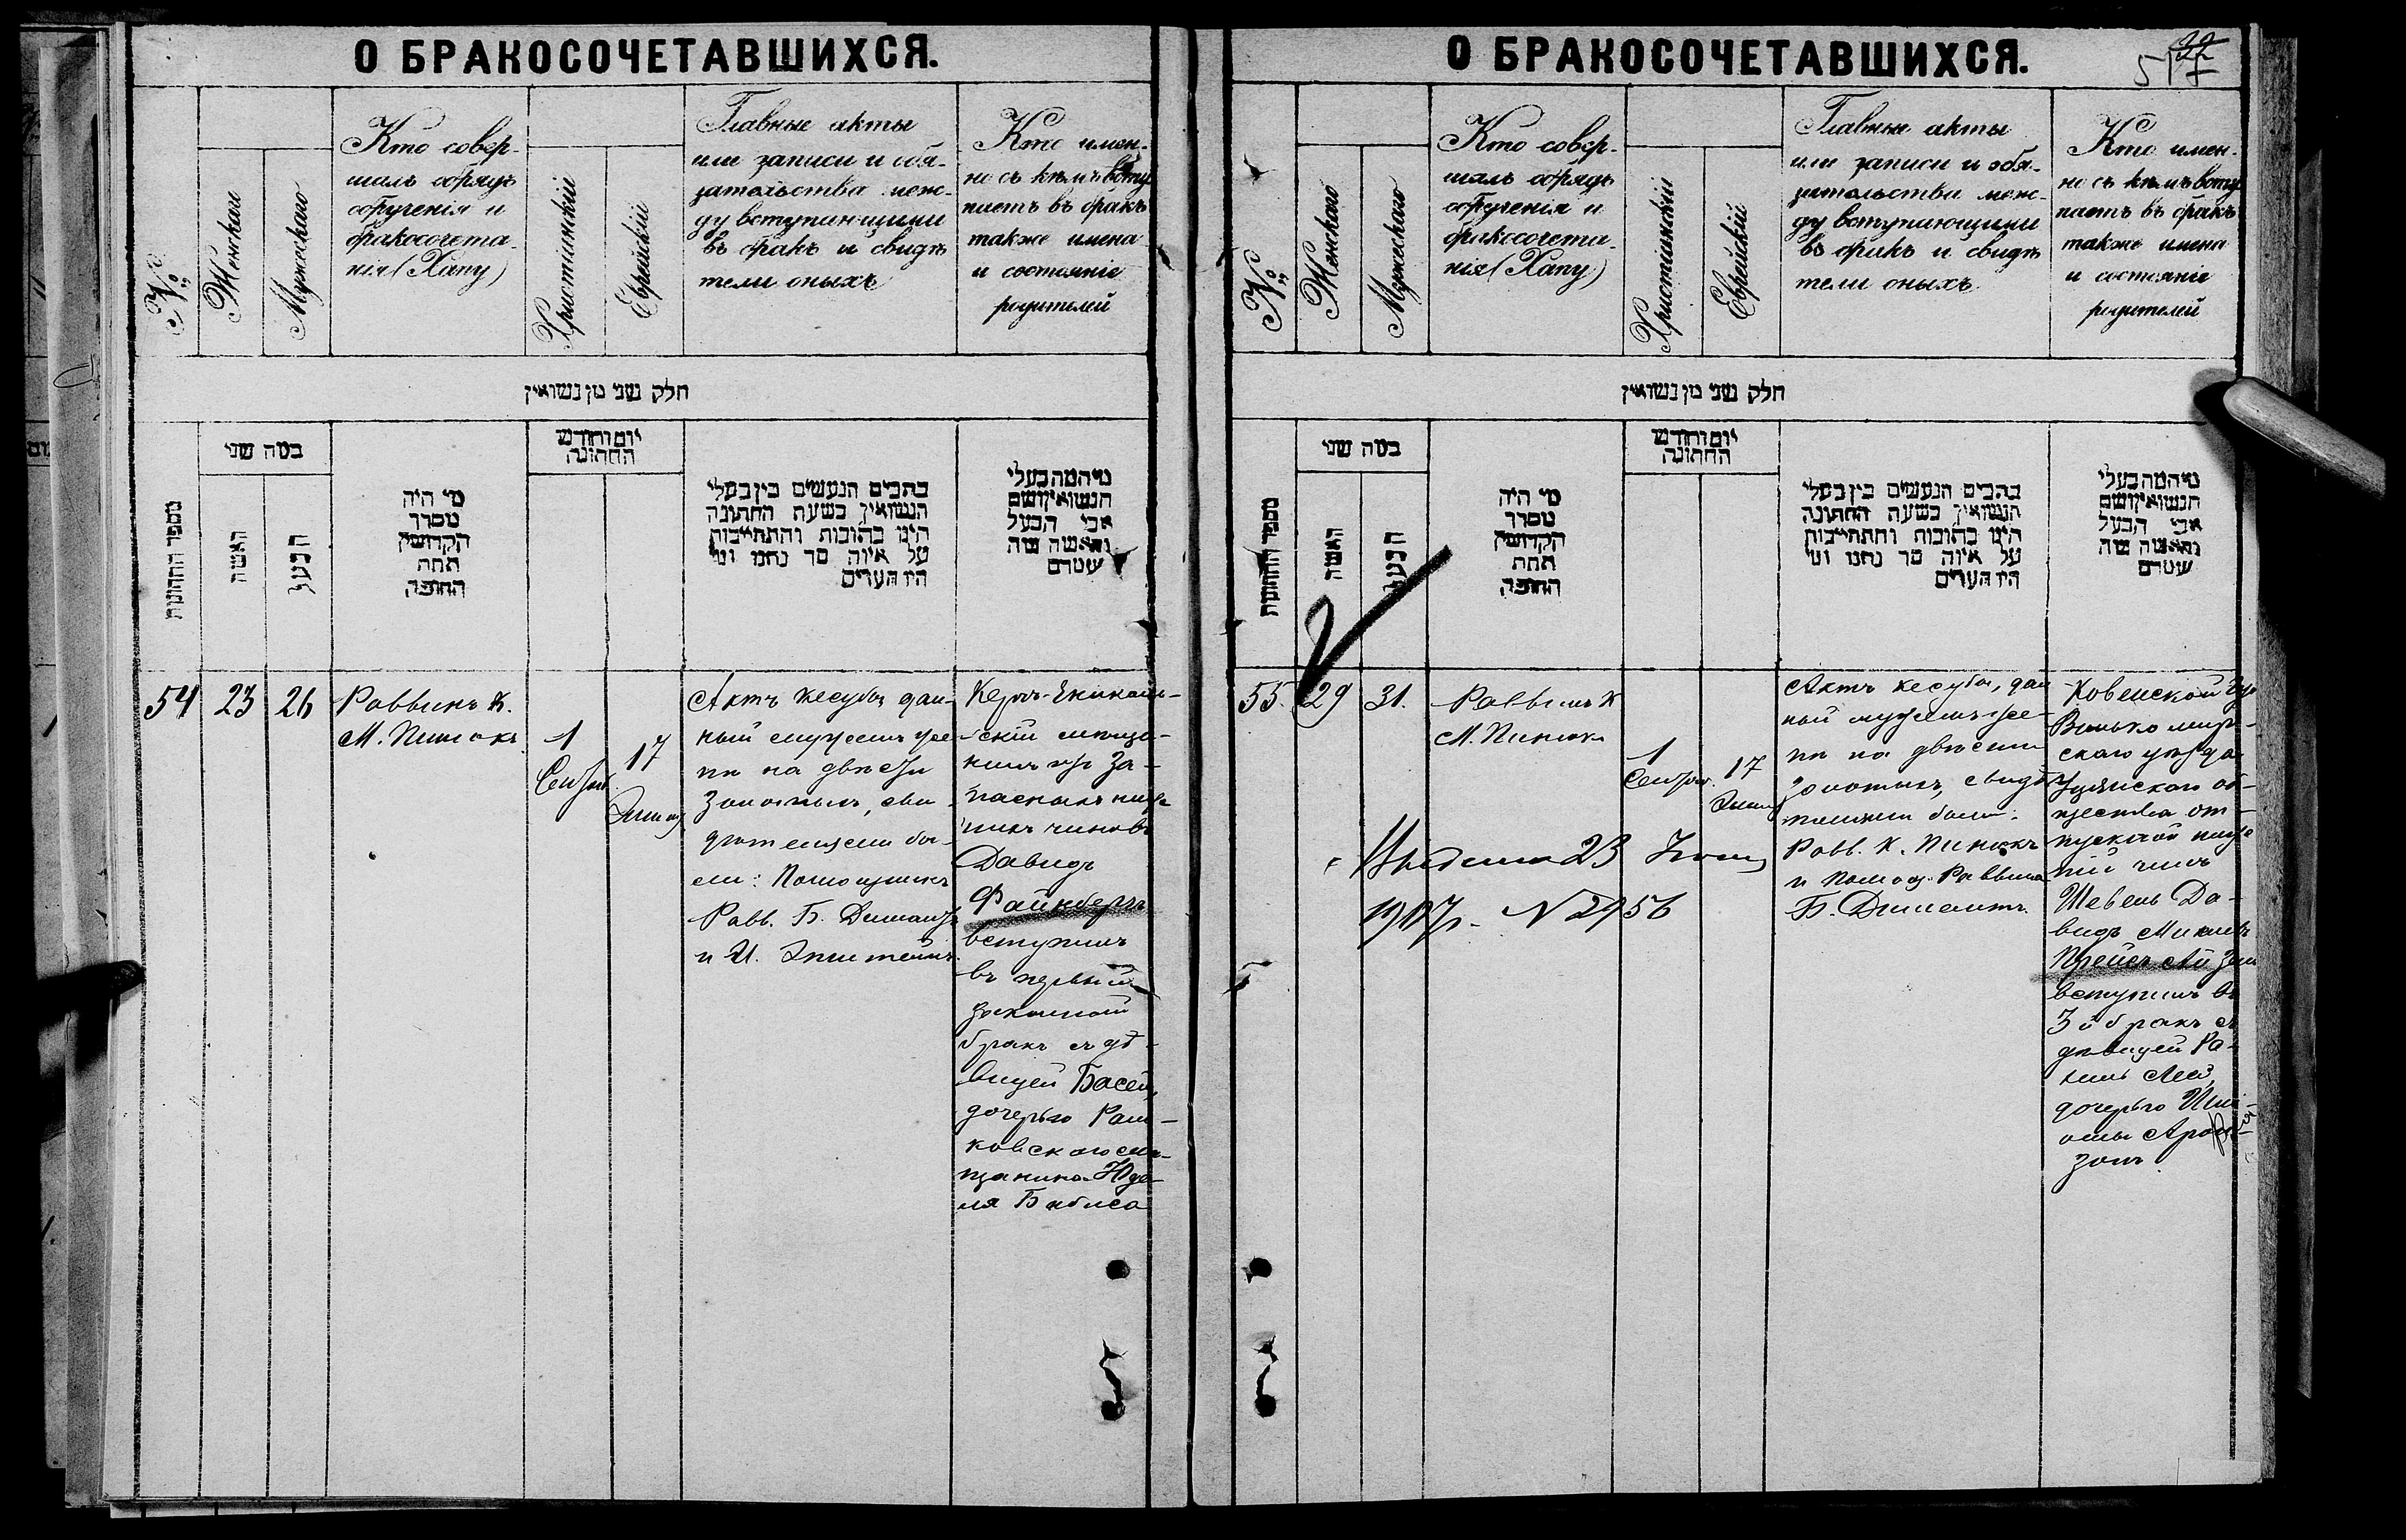 О БРАКОСОЧЕТАВШИХСЯ.
№
Женскаго
Мужескаго
Кто совер-
шалъ обрядъ
обрученія и
бракосочета-
нія (Хапу)
Христіанскій
Еврейскій
Главные акты
или записи и обя-
зательства меж-
ду вступающими
въ бракъ и свидѣ
тели оныхъ
Кто имен-
но съ кѣмъ всту
паетъ въ бракъ
также имена
и состояніе
родителей
חלק שני מן נשואין
מספר החתונות
כמה שני
האשה
הבעל
מי היה
מסדר
הקדושין
תחת
החופה
יום וחודש
החתונה
כתבים הנעשים בין בעלי
הנשואין בשעת החתונה
היינו כתובות והתחייבות
על איזה סך נתנו ומי
היו העדים
מי המה בעלי
הנשואין ושם
אבי הבעל
והאשה ומה
שטרם
54
23
26
Раввинъ К.
М. Пинюкъ
1
Сентяб.
17
Элюля
Актъ кесуба дан-
ный мужемъ же-
нѣ на двѣсти
золотыхъ, сви-
дѣтелями бы-
ли: Помощникъ
Равв. Б. Димантъ
и И. Эпштейнъ
Керчь-Еникаль-
скій мѣща-
нинъ изъ за-
пасныхъ ниж-
нихъ чиновъ
Давидъ
Файнбергъ
вступилъ
въ первый
законный
бракъ съ дѣ-
вицей Басей,
дочерью Раш-
ковского мѣ-
щанина Юде-
ля Бабиса
О БРАКОСОЧЕТАВШИХСЯ.
№
Женскаго
Мужескаго
Кто совер-
шалъ обрядъ
обрученія и
бракосочета-
нія (Хапу)
Христіанскій
Еврейскій
Главные акты
или записи и обя-
зательства меж-
ду вступающими
въ бракъ и свидѣ
тели оныхъ
Кто имен-
но съ кѣмъ всту
паетъ въ бракъ
также имена
и состояніе
родителей
חלק שני מן נשואין
מספר החתונות
כמה שני
האשה
הבעל
מי היה
מסדר
הקדושין
תחת
החופה
יום וחודש
החתונה
כתבים הנעשים בין בעלי
הנשואין בשעת החתונה
היינו כתובות והתחייבות
על איזה סך נתנו ומי
היו העדים
מי המה בעלי
הנשואין ושם
אבי הבעל
והאשה ומה
שטרם
55.
29
31.
Раввинъ К
М. Пинюкъ
1
Сентяб.
17
Элюля
Актъ кесуба, дан
ный мужемъ же-
нѣ на двѣсти
золотыхъ, свидѣ
телями были:
Равв. К. Пинюкъ
и помощ. Раввина
Б. Димантъ.
Ковенской губ
Вилькомир-
скаго уѣзда
общества от-
пускной ниж
ній чинъ
Шевель Да-
видъ
вступилъ въ
3й бракъ съ
дѣвицей Ра-
дочерью
зонъ
23
№ 2956